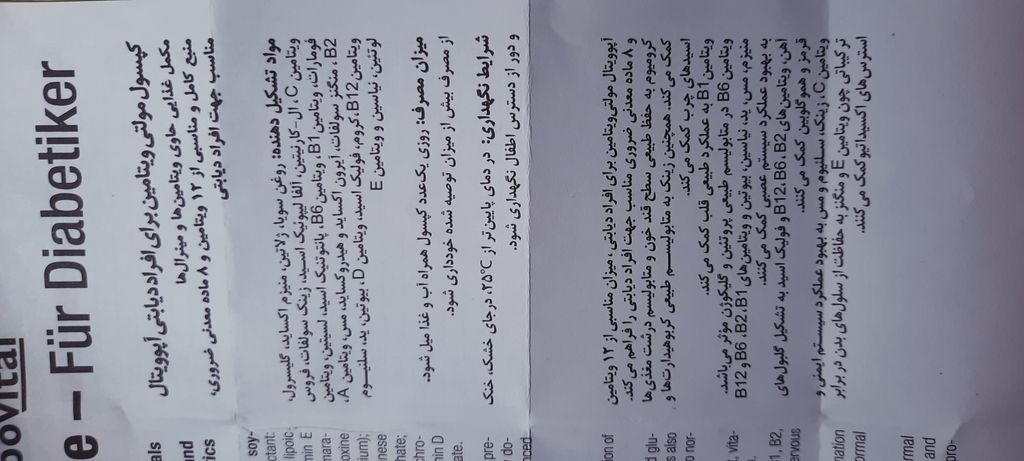 e – Für Diabetiker
کپسول مولتی ویتامین برای افراد دیابتی آیوویتال
مکمل غذایی حاوی ویتامین ها و مینرال ها
منبع کامل و مناسبی از ۱۲ ویتامین و ۸ ماده معدنی ضروری،
مناسب جهت افراد دیابتی
مواد تشکیل دهنده: روغن سویا، ژلاتین، منیزم اکساید، گلیسرول،
ویتامین C، ال-کارنیتین، آلفا لیپوئیک اسید، زینک سولفات، فروس
فومارات، ویتامین B1، ویتامین B6، پانتوتنیک اسید، لسیتین، ویتامین
B2، منگنز سولفات، آیرون اکساید و هیدروکساید، مس، ویتامین A،
ویتامین B12، کروم، فولیک اسید، ویتامین D، بیوتین، ید، سلنیوم
لوتئین، نیاسین و ویتامین E
میزان مصرف: روزی یک عدد کپسول همراه آب و غذا میل شود.
از مصرف بیش از میزان توصیه شده خودداری شود.
شرایط نگهداری: در دمای پایین تر از ۲۵°C، در جای خشک، خنک
و دور از دسترس اطفال نگهداری شود.
آیوویتال مولتی ویتامین برای افراد دیابتی، میزان مناسبی از ۱۲ ویتامین
و ۸ ماده معدنی ضروری مناسب جهت افراد دیابتی را فراهم می کند.
کرومیوم به حفظ طبیعی سطح قند خون و متابولیسم درشت مغذی ها
کمک می کند. همچنین زینک به متابولیسم طبیعی کربوهیدرات ها و
اسیدهای چرب کمک می کند.
ویتامین B1 به عملکرد طبیعی قلب کمک می کند.
ویتامین B6 در متابولیسم طبیعی پروتئین و گلیکوژن موثر می باشد.
منیزم، مس، ید، نیاسین، بیوتین و ویتامین های B1، B2، B6 و B12
به بهبود عملکرد سیستم عصبی کمک می کنند.
آهن، ویتامین های B2، B6، B12 و فولیک اسید به تشکیل گلبول های
قرمز و هموگلوبین کمک می کنند.
ویتامین C، زینک، سلنیوم و مس به بهبود عملکرد سیستم ایمنی و
ترکیباتی چون ویتامین E و منگنز به حفاظت از سلول های بدن در برابر
استرس های اکسیداتیو کمک می کنند.
als
and
tics
soy-
ctant:
lipoic
min E
mara-
oxine
ium);
nese
hate;
chro-
min D
ate.
pre-
do-
ion of
d glu-
s also
o nor-
, vita-
1, B2,
ervous
nation
ormal
rmal
and
pro-